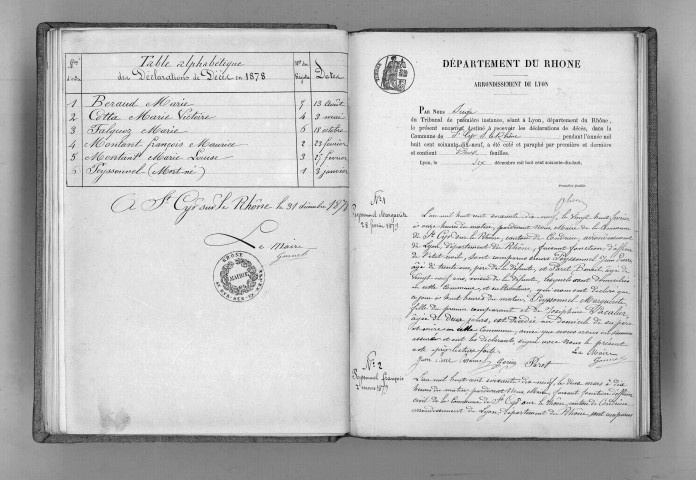 Table alphabétique
des Déclarations de Décès en 1878
Dates
1 Beraud Marie 7 13 août
2 Cotta Marie Victoire 4 3 mai
3 Falquoz Marie 6 18 octobre
4 Montant françois Maurice 2 23 janvier
5 Montant Marie Louise 3 25 février
6 Peyssonnel (Mort-né) 1 3 janvier
A St Cyr sur le Rhône le 31 décembre 1878
Le Maire
MAIRIE
DÉPARTEMENT DU RHONE
ARRONDISSEMENT DE LYON
PAR NOUS Juge
du Tribunal de première instance, séant à Lyon, département du Rhône,
le présent registre destiné à recevoir les déclarations de décès, dans la
Commune de St Cyr s. le Rhône pendant l'année mil
huit cent soixante-dix-neuf, a été coté et paraphé par première et dernière
et contient feuilles.
Lyon, le dix décembre mil huit cent soixante-dix-huit.
Première feuille
No 1
Peyssonnel Marguerite
28 février 1879
L'an mil huit cent soixante dix neuf, le vingt huit février
à onze heures du matin, pardevant Nous Maire de la Commune
de St Cyr sur le Rhône, canton de Condrieu, arrondissement
de Lyon, département du Rhône, faisant fonction d'officier
de l'état civil, sont comparus sieurs Peyssonnel Jean Pierre
âgé de trente ans, père de la défunte, et Paret Benoit âgé de
vingt neuf ans, voisin de la défunte, lesquels sont domiciliés
en cette Commune, et cultivateurs, qui nous ont déclaré que
ce jour à huit heures du matin, Peyssonnel Marguerite,
fille du premier comparant et de Joséphine
âgée de deux jours, est décédée au domicile de son père
en cette Commune, ainsi que nous nous en sommes
assuré et ont les déclarants signé avec Nous le présent
acte après lecture faite. Le Maire
Paret
No 2
Peyssonnel François
2 mars 1879
L'an mil huit cent soixante dix neuf, le deux mars à dix
heures du matin pardevant Nous Maire, faisant fonction d'officier
civil de la Commune de St Cyr sur le Rhône, canton de Condrieu
arrondissement de Lyon, département du Rhône, sont comparus